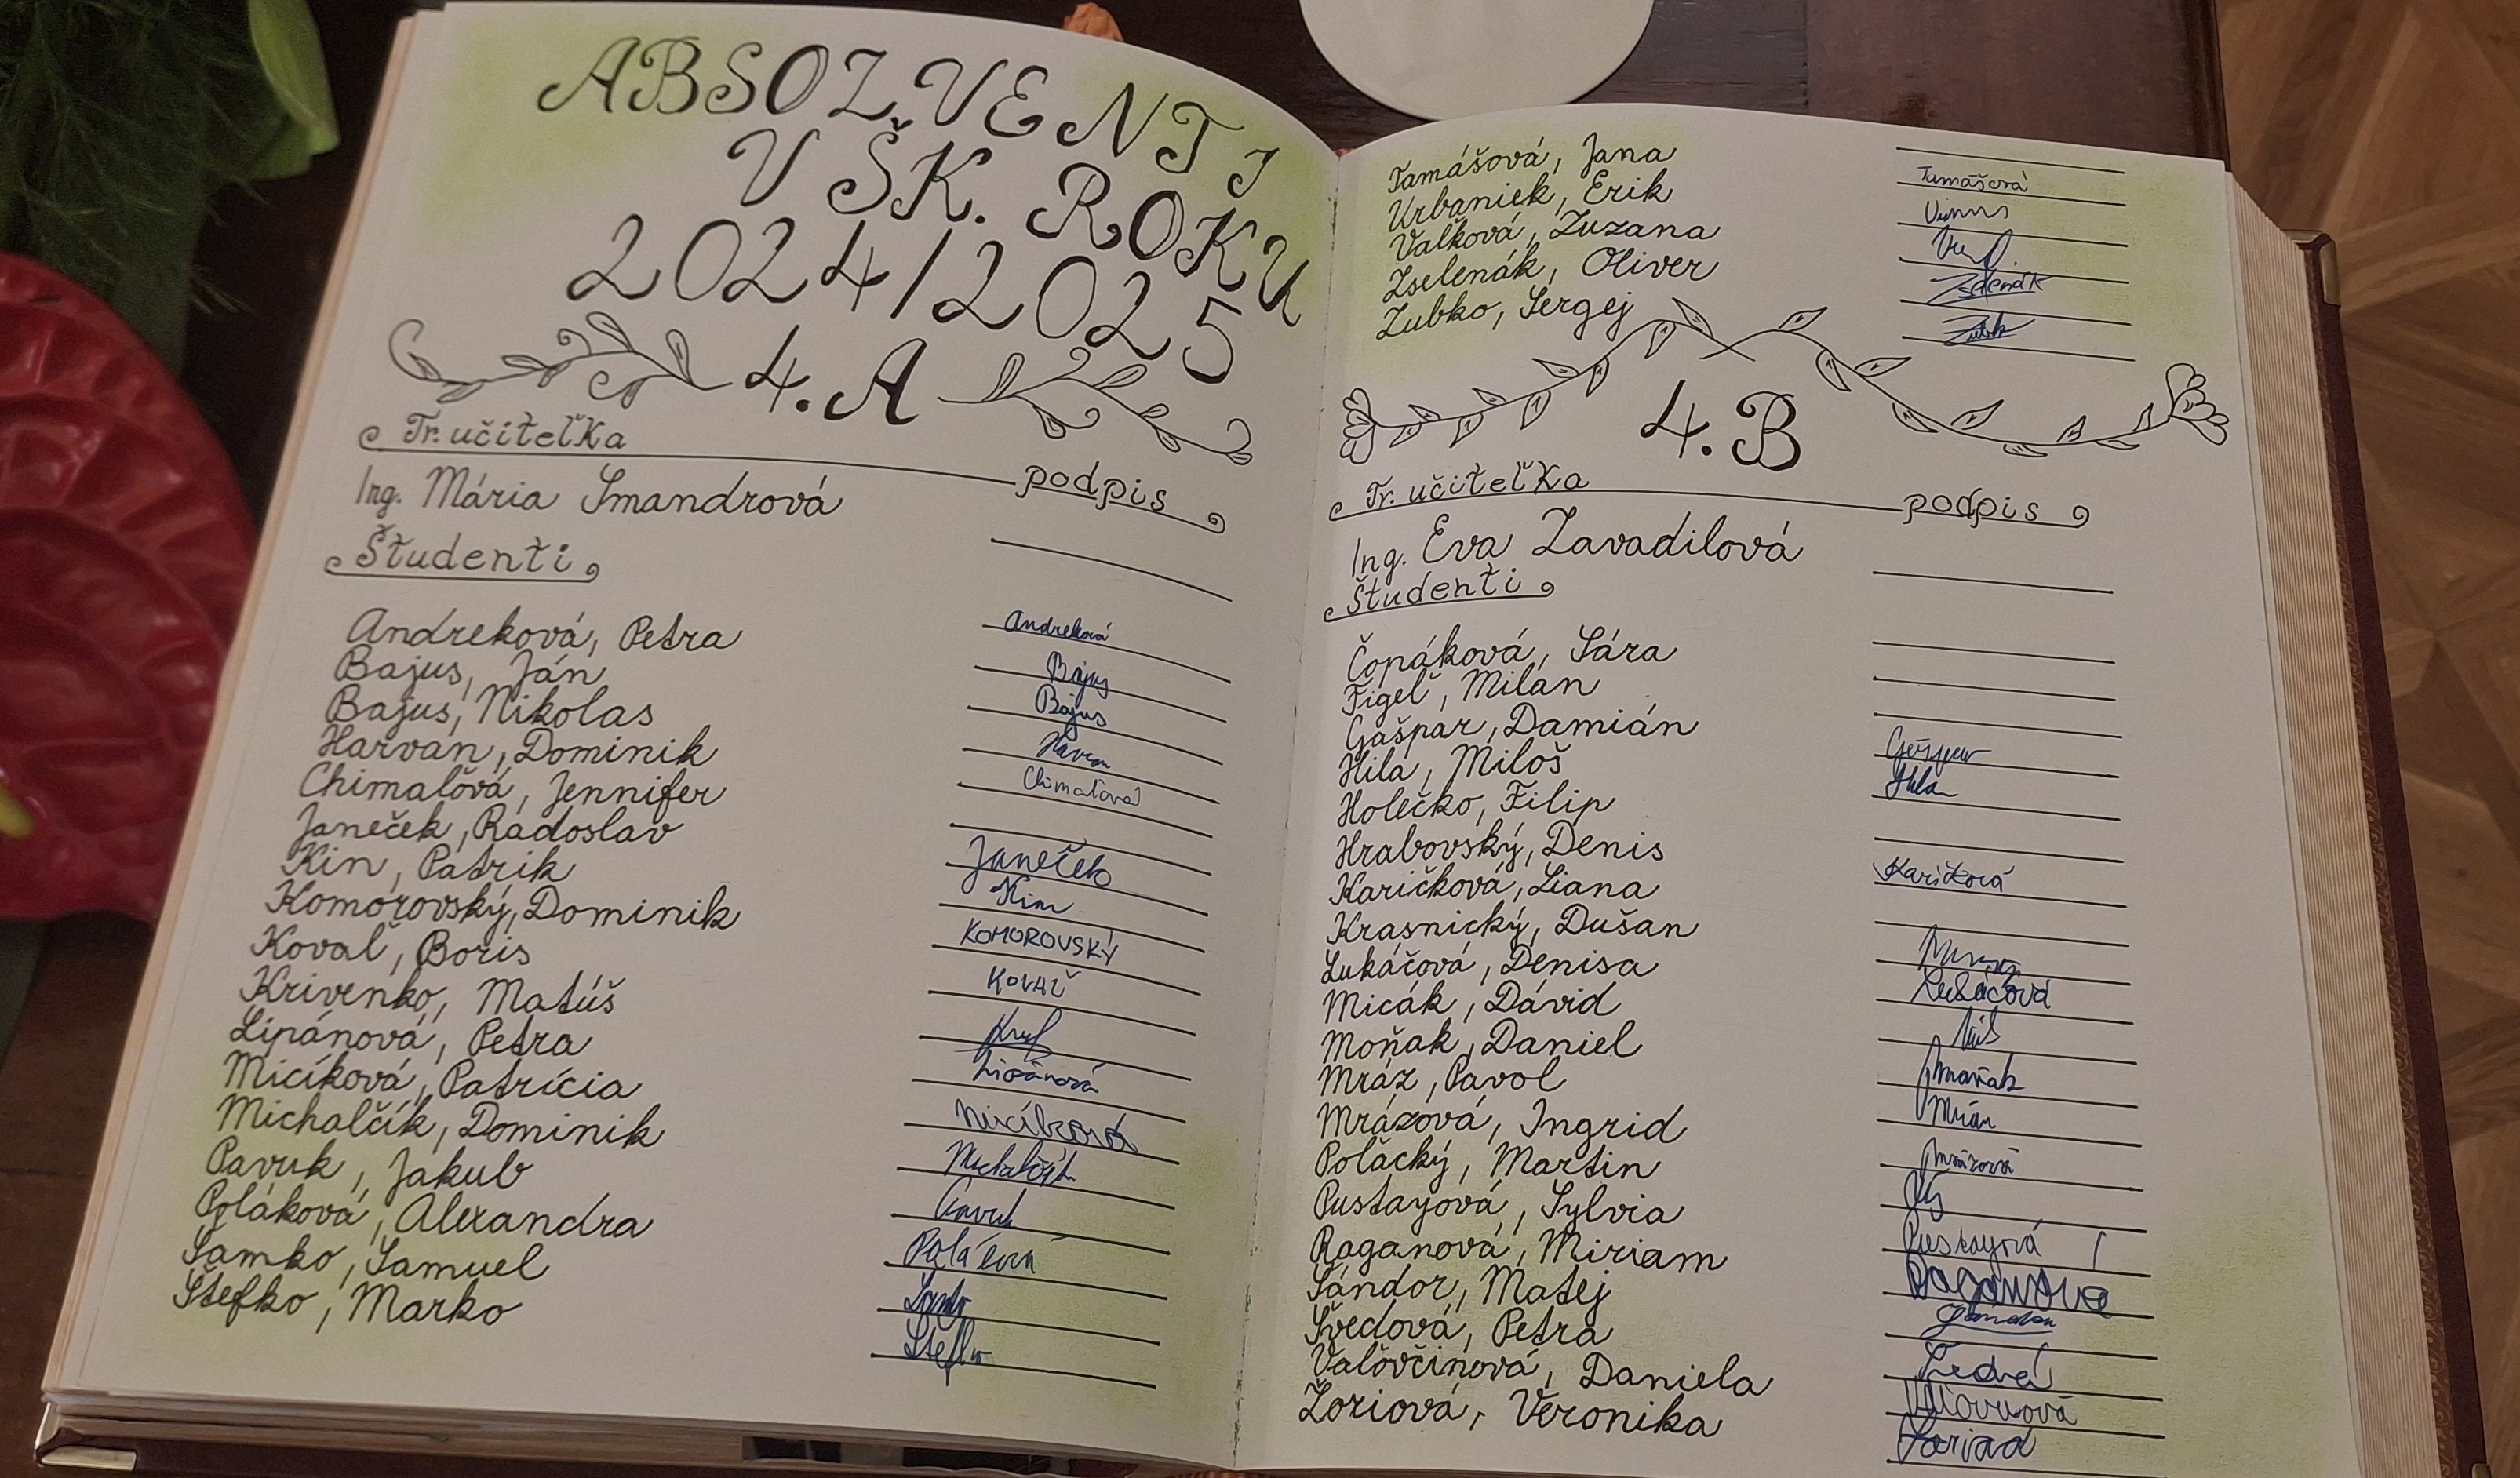 ABSOLVENTI
V ŠK. ROKU
2024/2025
4.A
Tr. učiteľka
podpis
Ing. Mária Smandrová
Študenti
Andreková, Petra Andreková
Bajus, Ján Bajus
Bajus, Nikolas Bajus
Harvan, Dominik
Chimaľová, Jennifer Chimaľová
Janeček, Radoslav Janeček
Kin, Patrik Kin
Komorovský, Dominik KOMOROVSKÝ
Kovaľ, Boris KOVAĽ
Krivenko, Matúš
Lipánová, Petra Lipánová
Micíková, Patrícia Micíková
Michalčík, Dominik Michalčík
Pavuk, Jakub Pavuk
Poláková, Alexandra
Samko, Samuel
Štefko, Marko
Tamášová, Jana Tamášová
Urbaniek, Erik
Vaľková, Zuzana
Zselenák, Oliver
Zubko, Sergej
4.B
Tr. učiteľka
podpis
Ing. Eva Zavadilová
Študenti
Čopáková, Sára
Figeľ, Milan
Gašpar, Damián
Hila, Miloš Hila
Holečko, Filip
Hrabovský, Denis
Karičková, Liana Karičková
Krasnický, Dušan
Lukáčová, Denisa Lukáčová
Micák, Dávid
Moňak, Daniel
Mráz, Pavol
Mrázová, Ingrid Mrázová
Poľacký, Martin
Pustayová, Sylvia Pustayová
Raganová, Miriam Raganová
Šándor, Matej
Švedová, Petra
Vaľovčinová, Daniela
Žoriová, Veronika